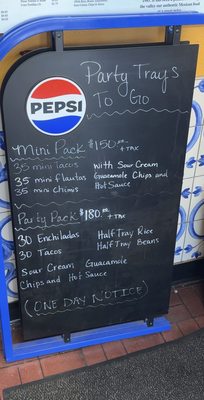 the valley our authentic Mexican food
Party Trays
To Go
PEPSI
Mini Pack $150.00 + TAX
35 mini Tacos with Sour Cream
35 mini Flautas Guacamole Chips and
35 mini Chimis Hot Sauce
Party Pack $180.00 + TAX
30 Enchiladas Half Tray Rice
30 Tacos Half Tray Beans
Sour Cream Guacamole
Chips and Hot Sauce
(ONE DAY NOTICE)